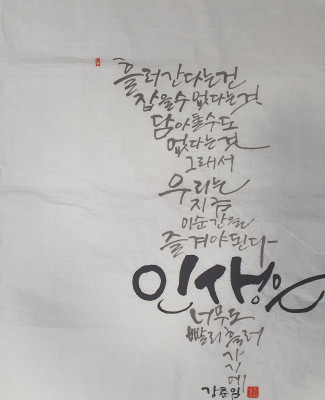 흘러간다는건
잡을수 없다는것
담아둘수도
없다는것
그래서
우리는
지금
이순간을
즐겨야된다
인생은
너무도
빨리 흘러
가기
에
강춘임